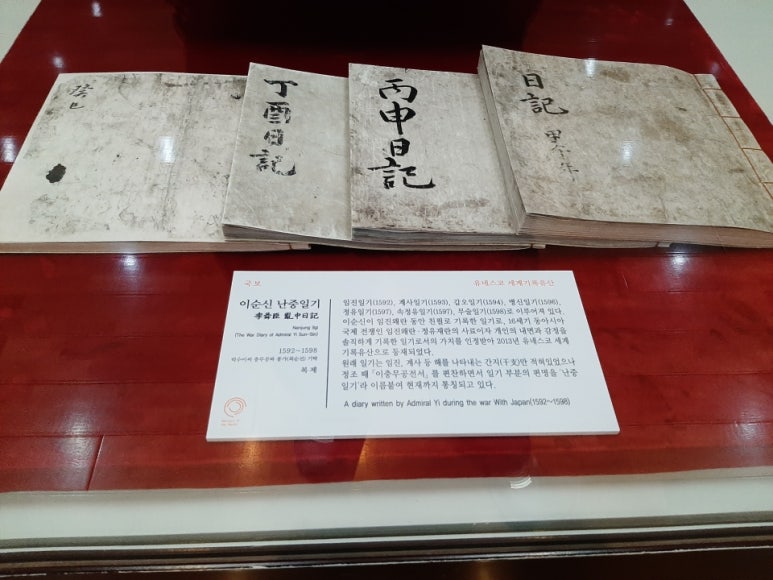 癸巳
丁酉日記
丙申日記
日記
甲午年
국보
유네스코 세계기록유산
이순신 난중일기
李舜臣 亂中日記
Nanjung Ilgi
(The War Diary of Admiral Yi Sun-Sin)
1592~1598
복제
임진일기(1592), 계사일기(1593), 갑오일기(1594), 병신일기(1596),
정유일기(1597), 속정유일기(1597), 무술일기(1598)로 이루어져 있다.
이순신이 임진왜란 동안 친필로 기록한 일기로, 16세기 동아시아
국제 전쟁인 임진왜란·정유재란의 사료이자 개인의 내면과 감정을
솔직하게 기록한 일기로서의 가치를 인정받아 2013년 유네스코 세계
기록유산으로 등재되었다.
원래 일기는 임진, 계사 등 해를 나타내는 간지(干支)만 적혀있었으나
정조 때 「이충무공전서」를 편찬하면서 일기 부분의 편명을 '난중
일기'라 이름붙여 현재까지 통칭되고 있다.
A diary written by Admiral Yi during the war With Japan(1592~1598)